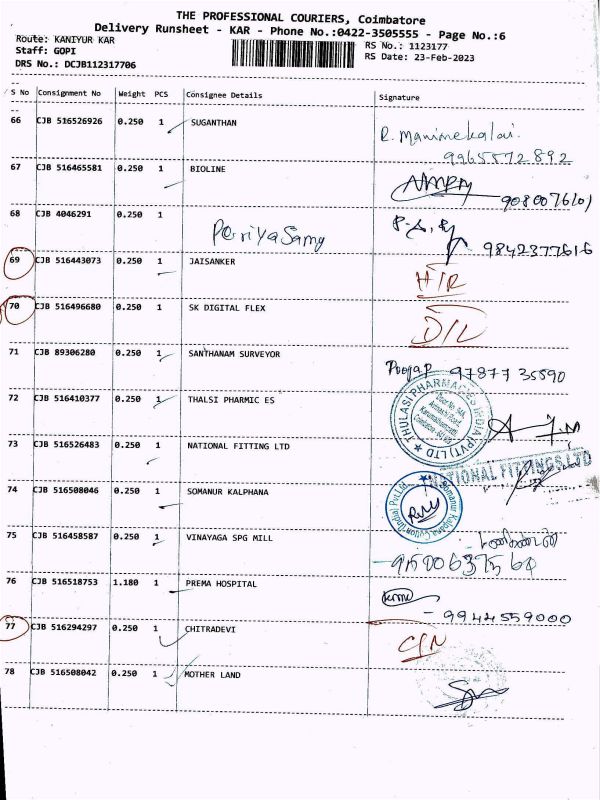 THE PROFESSIONAL COURIERS, Coimbatore
Delivery Runsheet - KAR - Phone No.:0422-3505555 - Page No.:6
Route: KANIYUR KAR
RS No.: 1123177
Staff: GOPI
RS Date: 23-Feb-2023
DRS No.: DCJB112317706
S No Consignment No Weight PCS Consignee Details Signature
66 CJB 516526926 0.250 1 SUGANTHAN R. Manimekalai.
9965572892
67 CJB 516465581 0.250 1 BIOLINE
9080076101
68 CJB 4046291 0.250 1 Periyasamy
9842377616
69 CJB 516443073 0.250 1 JAISANKER
70 CJB 516496680 0.250 1 SK DIGITAL FLEX D/L
71 CJB 89306280 0.250 1 SANTHANAM SURVEYOR 97877 35590
72 CJB 516410377 0.250 1 THALSI PHARMIC ES
THULASI PHARMACIES INDIA (PVT) LTD
73 CJB 516526483 0.250 1 NATIONAL FITTING LTD
NATIONAL FITTINGS LTD
74 CJB 516508046 0.250 1 SOMANUR KALPHANA
Somanur Kalpana Cotton (India) Pvt Ltd.
75 CJB 516458587 0.250 1 VINAYAGA SPG MILL
76 CJB 516518753 1.180 1 PREMA HOSPITAL
9944559000
77 CJB 516294297 0.250 1 CHITRADEVI
78 CJB 516508042 0.250 1 MOTHER LAND